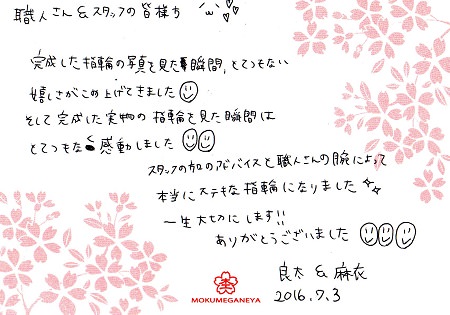 職人さん&スタッフの皆様方
完成した指輪の写真を見た瞬間、とてつもない
嬉しさがこみ上げてきました
そして完成した実物の指輪を見た瞬間は
とてつもなく感動しました
スタッフの方のアドバイスと職人さんの腕によって
本当にステキな指輪になりました
一生大切にします!!
ありがとうございました
良太 & 麻衣
2016.7.3
MOKUMEGANEYA